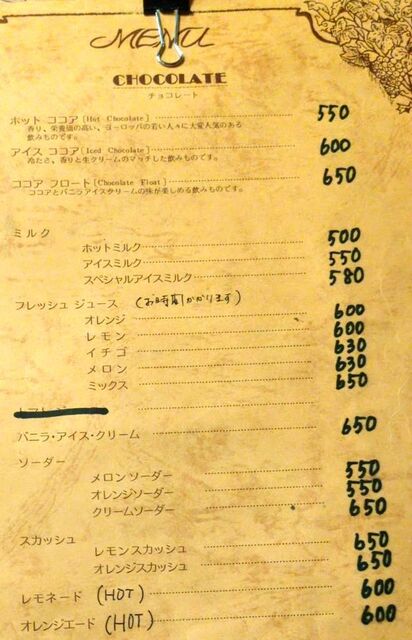 MENU
CHOCOLATE
チョコレート
ホット ココア [Hot Chocolate] 550
香り、栄養価の高い、ヨーロッパの若い人々に大変人気のある
飲みものです。
アイス ココア [Iced Chocolate] 600
冷たさ、香りと生クリームのマッチした飲みものです。
ココア フロート [Chocolate Float] 650
ココアとバニラアイスクリームの味が楽しめる飲みものです。
ミルク
ホットミルク 500
アイスミルク 550
スペシャルアイスミルク 580
フレッシュ ジュース (お時間かかります)
オレンジ 600
レモン 600
イチゴ 630
メロン 630
ミックス 650
バニラ・アイス・クリーム 650
ソーダー
メロンソーダー 550
オレンジソーダー 550
クリームソーダー 650
スカッシュ
レモンスカッシュ 650
オレンジスカッシュ 650
レモネード (HOT) 600
オレンジエード (HOT) 600